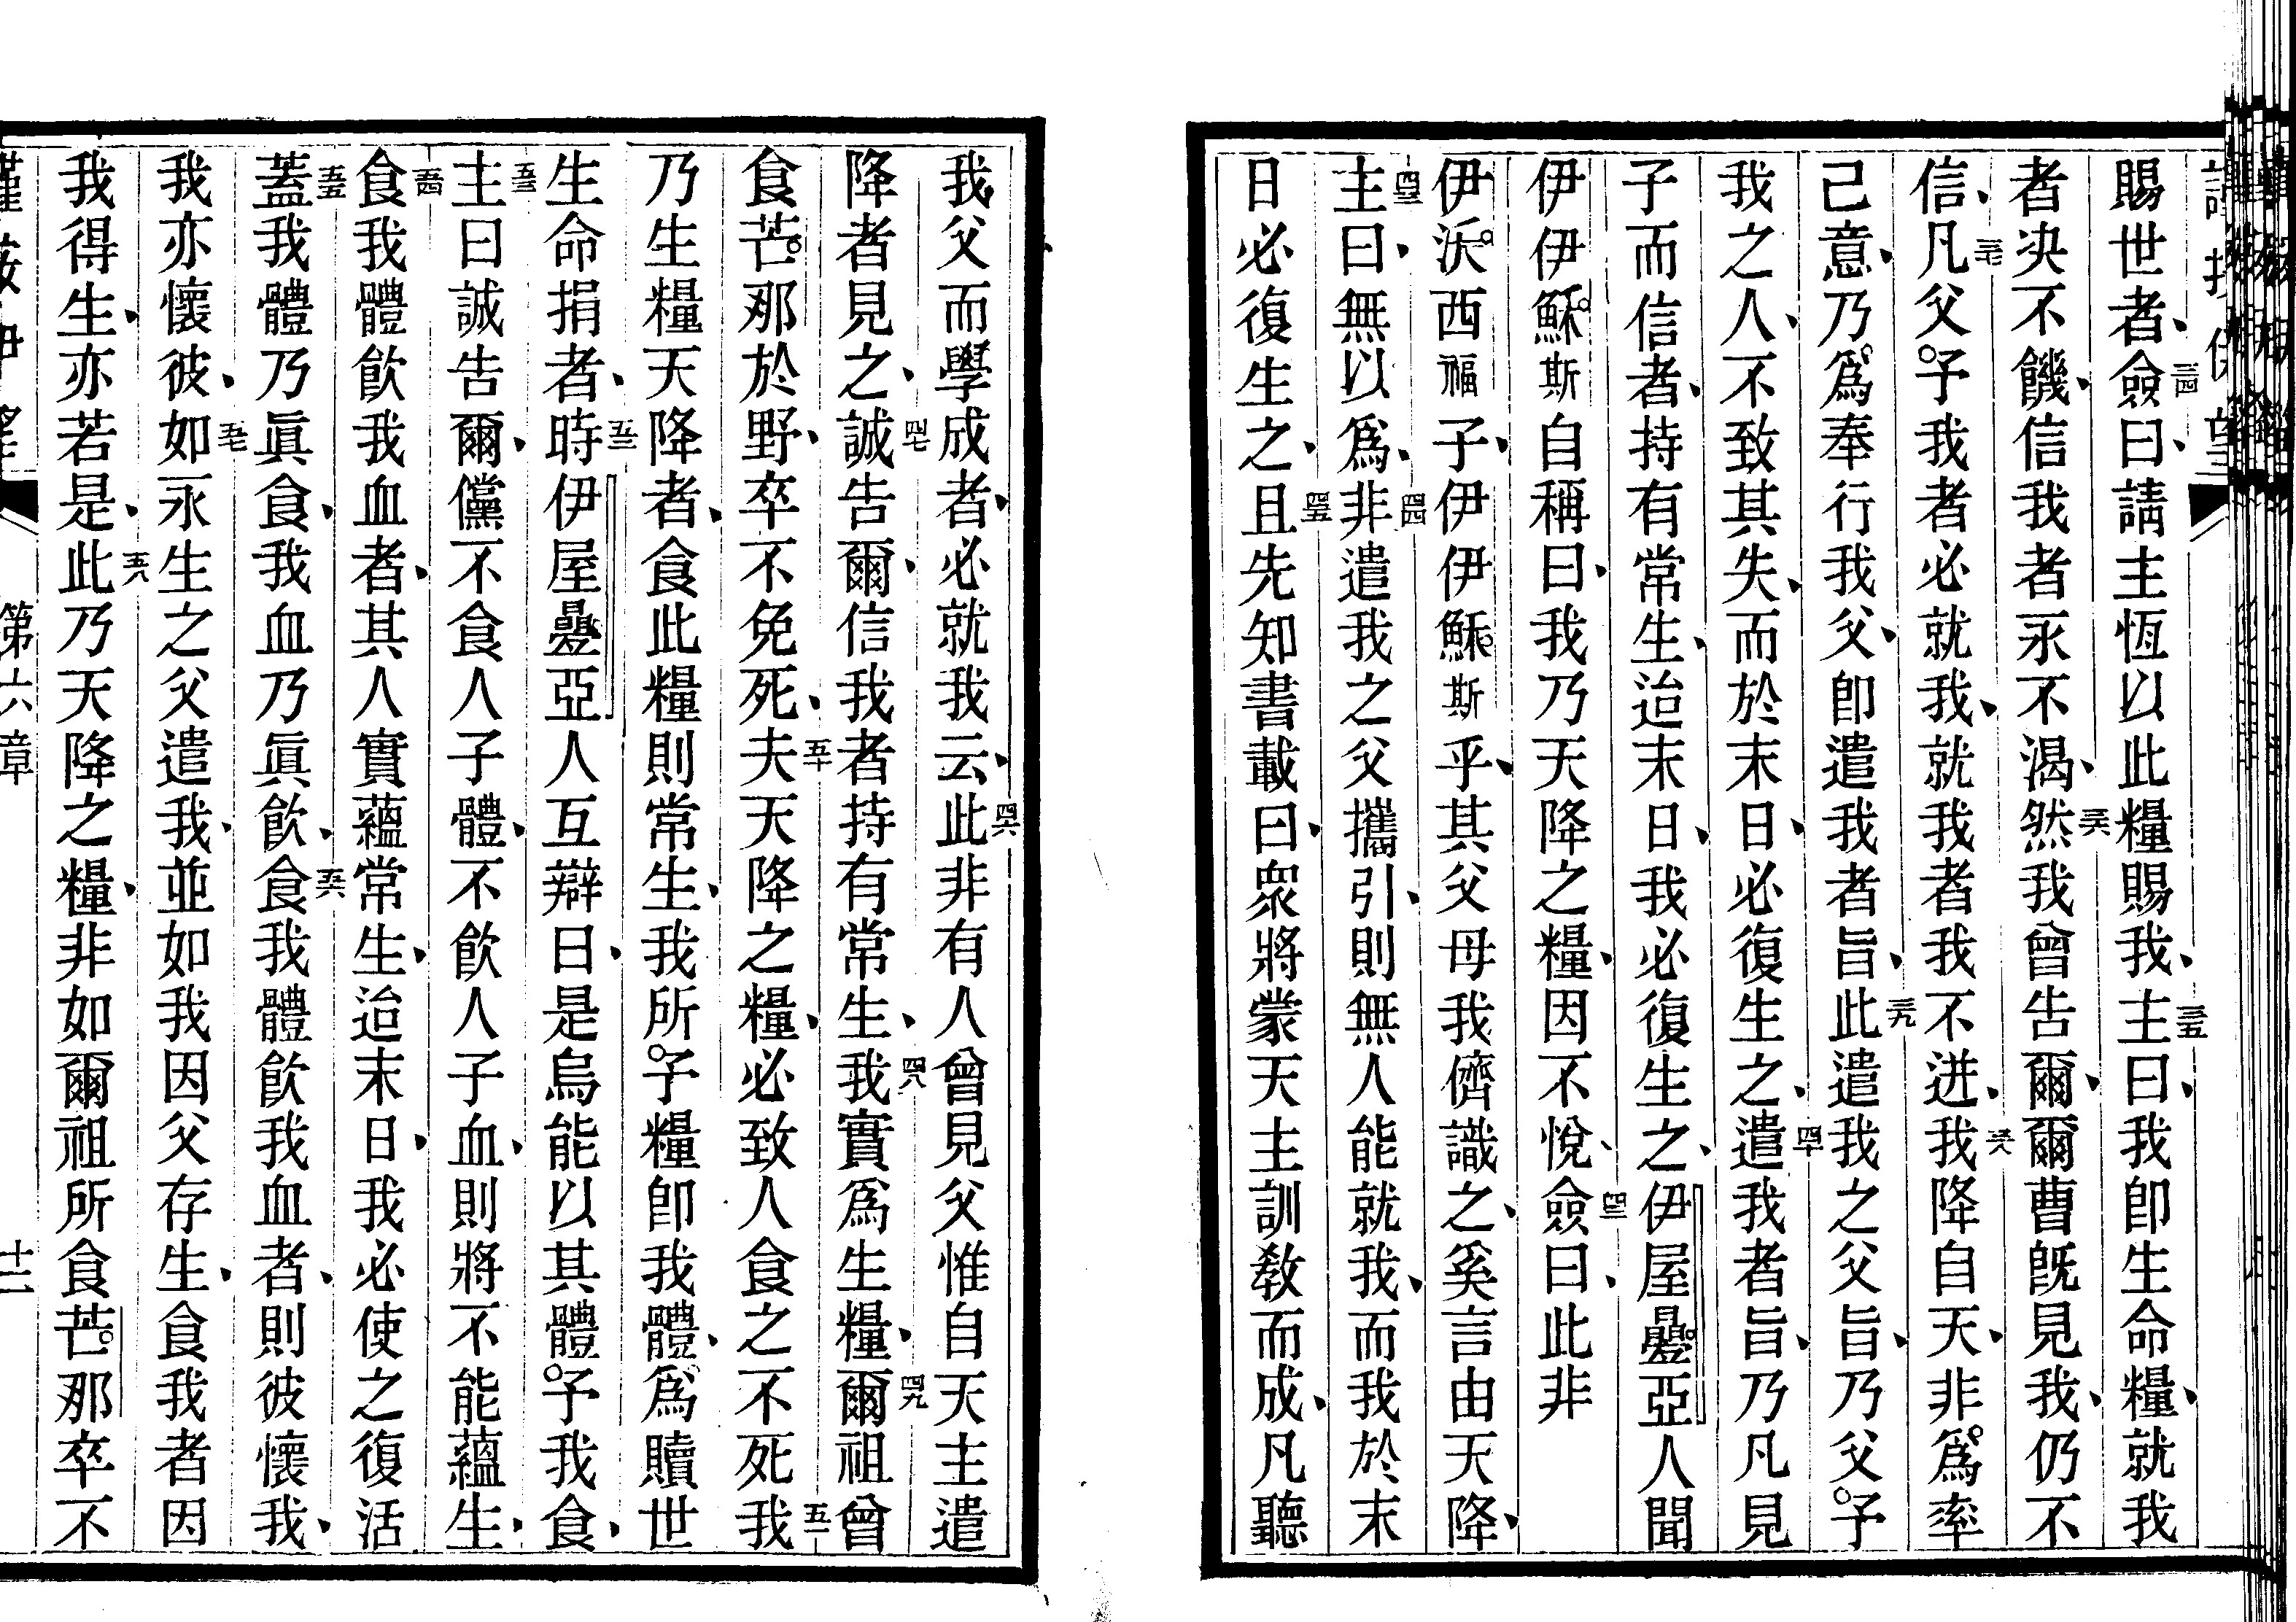 賜世者、三四僉曰、請主恆以此糧賜我、三五主曰、我卽生命糧、就我
者決不饑、信我者永不渴、三六然我曾告爾、爾曹旣見我、仍不
信、三七凡父予我者必就我、就我者我不迸、三八我降自天、非爲率
己意、乃爲奉行我父、卽遣我者旨、三九此遣我之父旨、乃父予
我之人、不致其失、而於末日、必復生之、四十遣我者旨、乃凡見
子而信者、持有常生、迨末日、我必復生之、伊屋疊亞人聞
伊伊穌斯自稱曰、我乃天降之糧、因不悅、四二僉曰、此非
伊沃西福子、伊伊穌斯乎、其父母我儕識之、奚言由天降、
四三主曰、無以爲、四四非遣我之父攜引、則無人能就我、而我於末
日必復生之、四五且先知書載曰、衆將蒙天主訓敎而成、凡聽
我父而學成者、必就我云、四六此非有人曾見父、惟自天主遣
降者見之、四七誠告爾、信我者持有常生、四八我實爲生糧、四九爾祖曾
食芒那於野、卒不免死、五十夫天降之糧、必致人食之不死、五一我
乃生糧天降者、食此糧則常生、我所予糧卽我體、爲贖世
生命捐者、五二時伊屋疊亞人互辯曰、是烏能以其體予我食、
五三主曰誠告爾、儻不食人子體、不飮人子血、則將不能蘊生、
五四食我體飮我血者、其人實蘊常生、迨末日、我必使之復活
五五蓋我體乃眞食、我血乃眞飮、五六食我體飮我血者、則彼懷我、
我亦懷彼、五七如永生之父遣我、並如我因父存生、食我者因
我得生、亦若是、五八此乃天降之糧、非如爾祖所食芒那卒不
第六章
十二